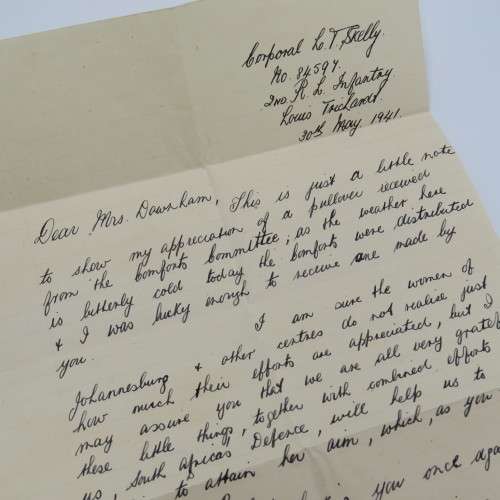 Corporal L. T. Skelly.
No. 84597.
2nd R. L. Infantry.
Louis Trichardt.
30th May, 1941.
Dear Mrs. Dawnham, This is just a little note
to show my appreciation of a pullover received
from the Comforts Committee; as the weather here
is bitterly cold today the Comforts were distributed
& I was lucky enough to receive one made by
you.
I am sure the women of
Johannesburg & other centres do not realise just
how much their efforts are appreciated, but I
may assure you that we are all very grateful
these little things, together with combined efforts
us, South Africas' Defence, will help us to
to attain her aim, which, as you
you once again